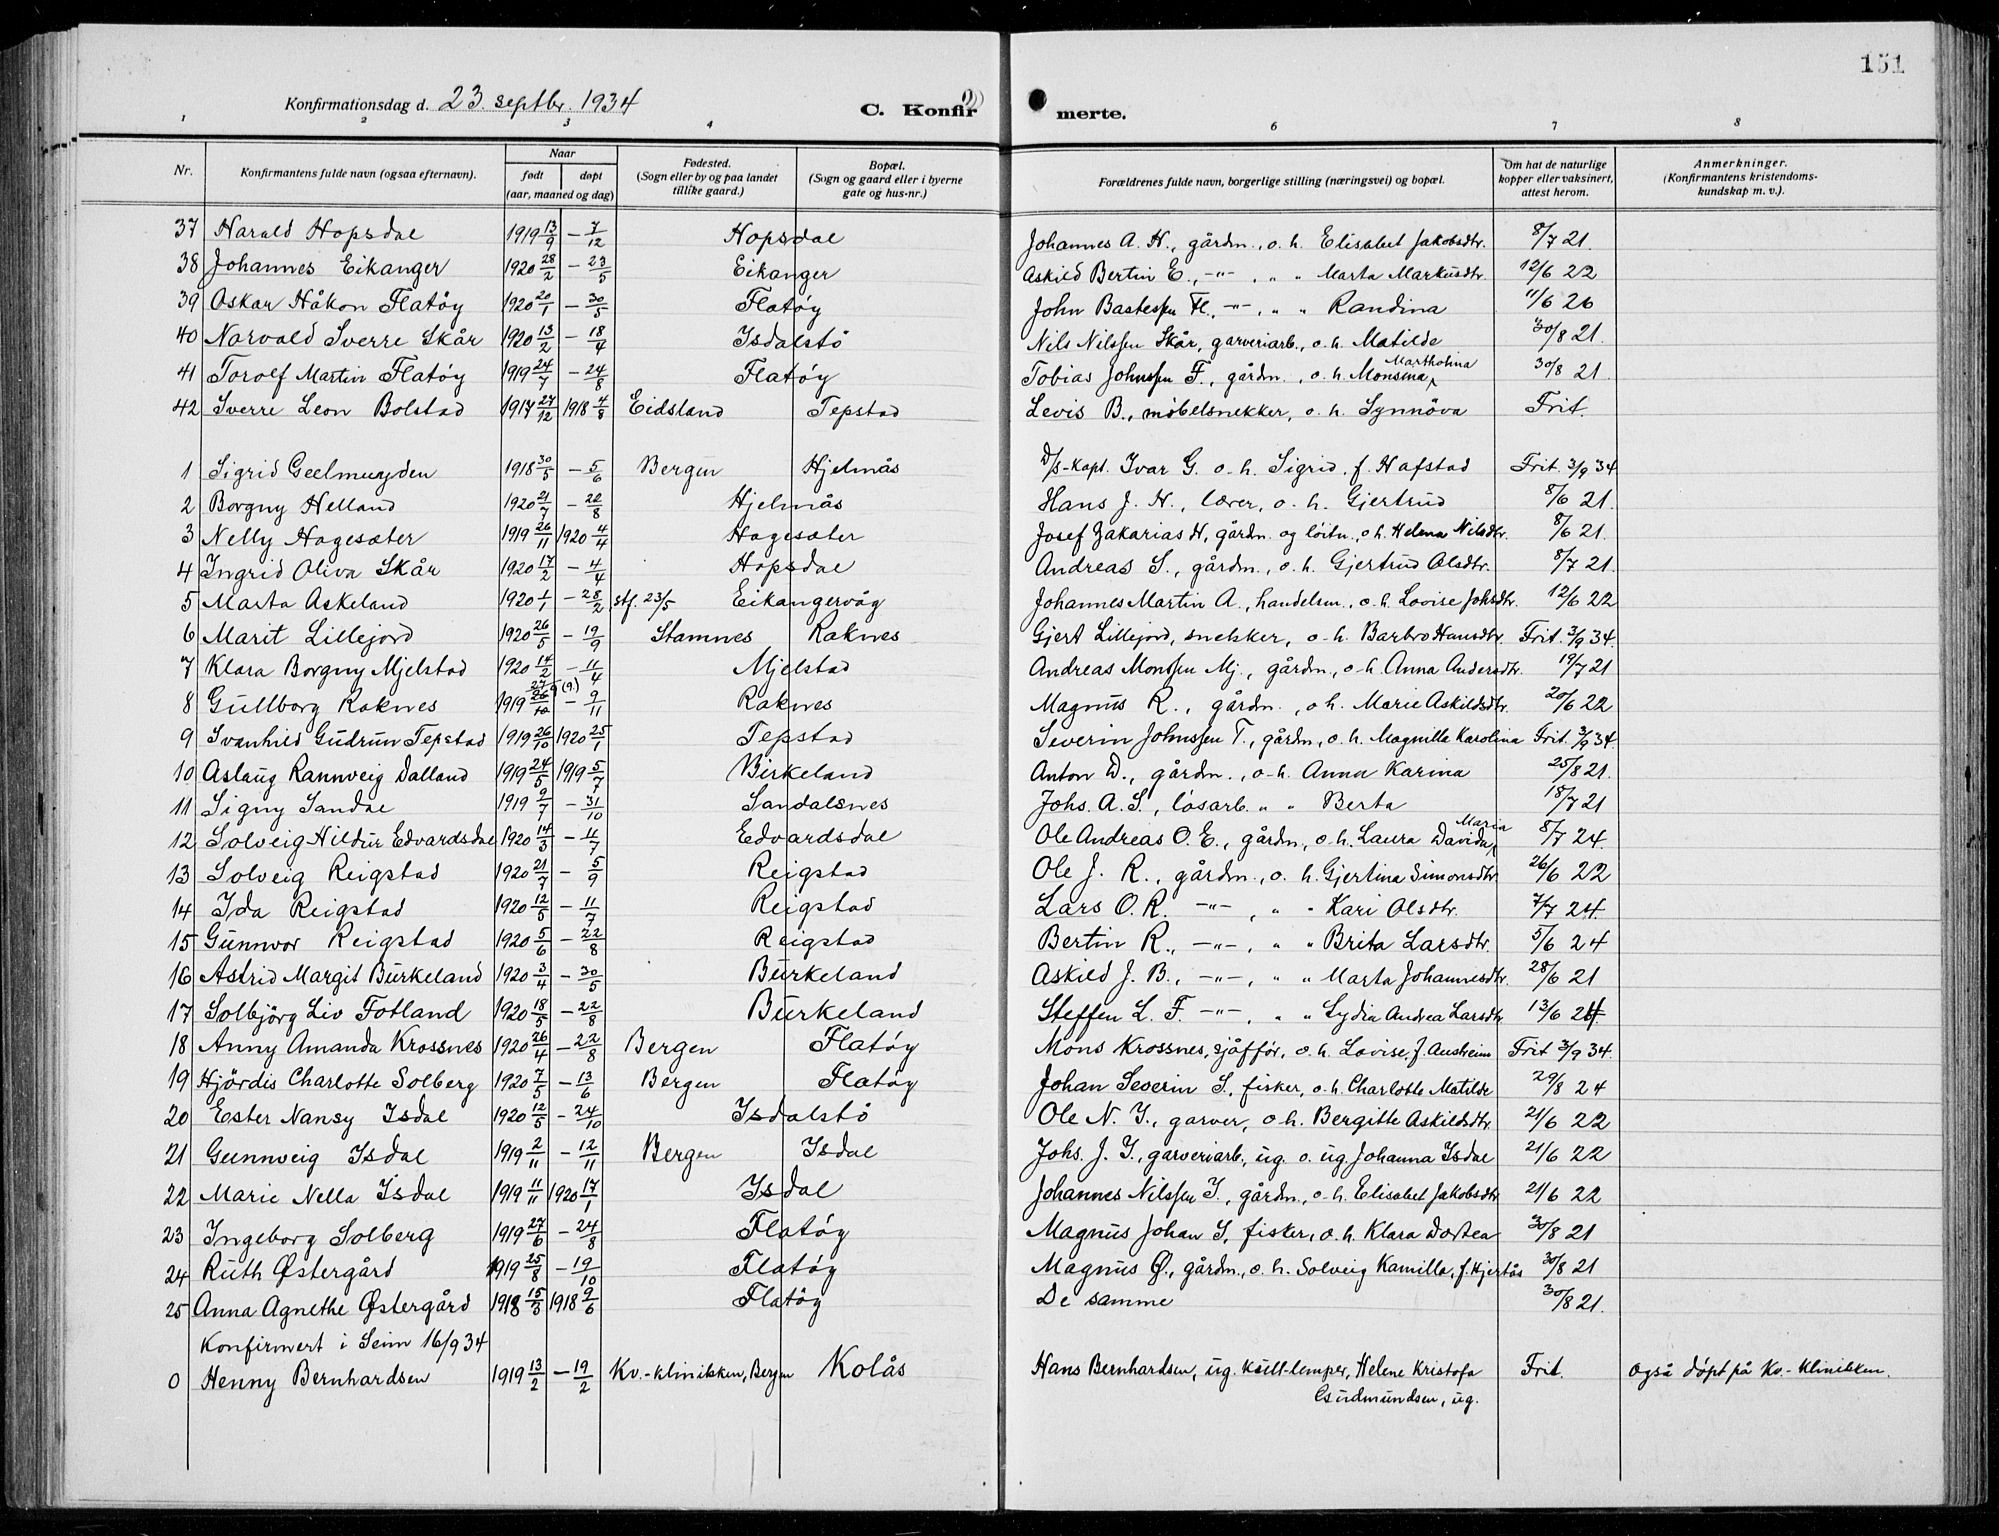 151
Konfirmationsdag d. 23 septbr. 1934 C. Konfir merte.
1 2 3 4 6 7 8
Nr. Konfirmantens fulde navn (ogsaa efternavn). Naar født døpt (aar, maaned og dag) Fødested. (Sogn eller by og paa landet tillike gaard.) Bopæl. (Sogn og gaard eller i byerne gate og hus-nr.) Forældrenes fulde navn, borgerlige stilling (næringsvei) og bopæl. Om hat de naturlige kopper eller vaksinert, attest herom. Anmerkninger. (Konfirmantens kristendoms-kundskap m. v.).
37 Harald Hopsdal 1919 13/9 – 7/12 Hopsdal Johannes A. H., gårdn., o. h. Elisabet Jakobsdtr. 8/7 21.
38 Johannes Eikanger 1920 28/2 – 23/5 Eikanger Askild Bertin E., –"–, " " Marta Markusdtr. 12/6 22
39 Oskar Håkon Flatøy 1920 20/1 – 30/5 Flatøy John Bastessen Fl., –"–, " " Randina 11/6 26
40 Norvald Sverre Skår 1920 13/2 – 18/4 Isdalstö Nils Nilssen Skår, garveriarb., o. h. Matilde 30/8 21.
41 Torolf Martin Flatøy 1919 24/7 – 24/8 Flatøy Tobias Johnssen F., gårdn., o. h. Monsina Martholina 30/8 21.
42 Sverre Leon Bolstad 1917 27/12 1918 4/8 Eidsland Tepstad Levis B., möbelsnekker, o. h. Synnöva Frit.
1 Sigrid Geelmuyden 1918 30/5 – 5/6 Bergen Hjelmås D/s-kapt. Ivar G. o. h. Sigrid, f. Hafstad Frit. 3/9 34
2 Borgny Helland 1920 21/7 – 22/8 Hjelmås Hans J. H., lærer, o. h. Gjertrud 8/6 21.
3 Nelly Hagesæter 1919 26/11 1920 4/4 Hagesæter Josef Zakarias H, gårdn. og löitn., o. h. Helena Nilsdtr. 8/6 21.
4 Ingrid Oliva Skår 1920 17/2 – 4/4 Hopsdal Andreas S., gårdn., o. h. Gjertrud Olsdtr. 8/7 21.
5 Marta Askeland 1920 1/1 – 28/2 stf. 23/5 Eikangervåg Johannes Martin A., handelsm., o. h. Lovise Johsdtr. 12/6 22
6 Marit Lillejord 1920 26/5 – 19/9 Stamnes Raknes Gjert Lillejord, snekker, o. h. Barbro Hansdtr. Frit. 3/9 34.
7 Klara Borgny Mjelstad 1920 14/2 – 11/4 Mjelstad Andreas Monssen Mj., gårdn., o. h. Anna Andersdtr. 19/7 21
8 Gullborg Raknes 1919 27/9 (?) 26/10 – 9/11 Raknes Magnus R., gårdn., o. h. Marie Askildsdtr. 20/6 22
9 Svanhild Gudrun Tepstad 1919 26/10 1920 25/1 Tepstad Severin Johnssen T., gårdn., o. h. Magnilla Karolina Frit. 3/9 34.
10 Aslaug Rannveig Dalland 1919 24/5 1919 5/7 Birkeland Anton D., gårdn., o. h. Anna Karina 25/8 21.
11 Signy Sandal 1919 9/7 – 31/10 Sandalsnes Johs. A. S., lösarb. " " Berta 18/7 21
12 Solveig Hildur Edvardsdal 1920 14/3 – 11/7 Edvardsdal Ole Andreas O. E., gårdn., o. h. Laura Davida Maria 8/7 24.
13 Solveig Reigstad 1920 21/7 – 5/9 Reigstad Ole J. R., gårdn., o. h. Gjertina Simonsdtr 26/6 22
14 Ida Reigstad 1920 12/5 – 11/7 Reigstad Lars O. R. –"–, " " Kari Olsdtr. 7/7 24
15 Gunnvor Reigstad 1920 5/6 – 22/8 Reigstad Bertin R., –"–, " " Brita Larsdtr. 5/6 24
16 Astrid Margit Burkeland 1920 3/4 – 30/5 Burkeland Askild J. B., –"–, " " Marta Johannesdtr. 28/6 21
17 Solbjörg Liv Fotland 1920 18/5 – 22/8 Burkeland Steffen L. F. –"–, " " Lydia Andrea Larsdtr 13/6 24.
18 Anny Amanda Krossnes 1920 26/4 – 22/8 Bergen Flatøy Mons Krossnes, sjåfför, o. h. Lovise, f. Ausheim Frit 3/9 34.
19 Hjördis Charlotte Solberg 1920 7/5 – 13/6 Bergen Flatøy Johan Severin S., fisker, o. h. Charlotte Matilde 29/8 24
20 Ester Nansy Isdal 1920 12/5 – 24/10 Isdalstö Ole N. I., garver, o. h. Bergitte Askildsdtr. 21/6 22
21 Gunnveig Isdal 1919 2/11 – 12/11 Bergen Isdal Johs. J. I., garveriarb., ug. o. ug. Johanna Isdal 21/6 22
22 Marie Nella Isdal 1919 11/11 1920 17/1 Isdal Johannes Nilssen I., gårdn., o. h. Elisabet Jakobsdtr 21/6 22
23 Ingeborg Solberg 1919 27/6 – 24/8 Flatøy Magnus Johan S., fisker, o. h. Klara Dortea 30/8 21
24 Ruth Østergård 1919 25/8 – 19/10 Flatøy Magnus Ø., gårdn., o. h. Solveig Kamilla, f. Hjertås 30/8 21
25 Anna Agnethe Østergård 1918 15/3 1918 9/6 Flatøy De samme 30/8 21.
Konfirmert i Seim 16/9 34
0 Henny Bernhardsen 1919 13/2 – 19/2 Kv.-klinikken, Bergen Kolås Hans Bernhardsen, ug. kull-lemper, Helene Kristofa Gudmundsen, ug. Frit. Også döpt på Kv.-klinikken.